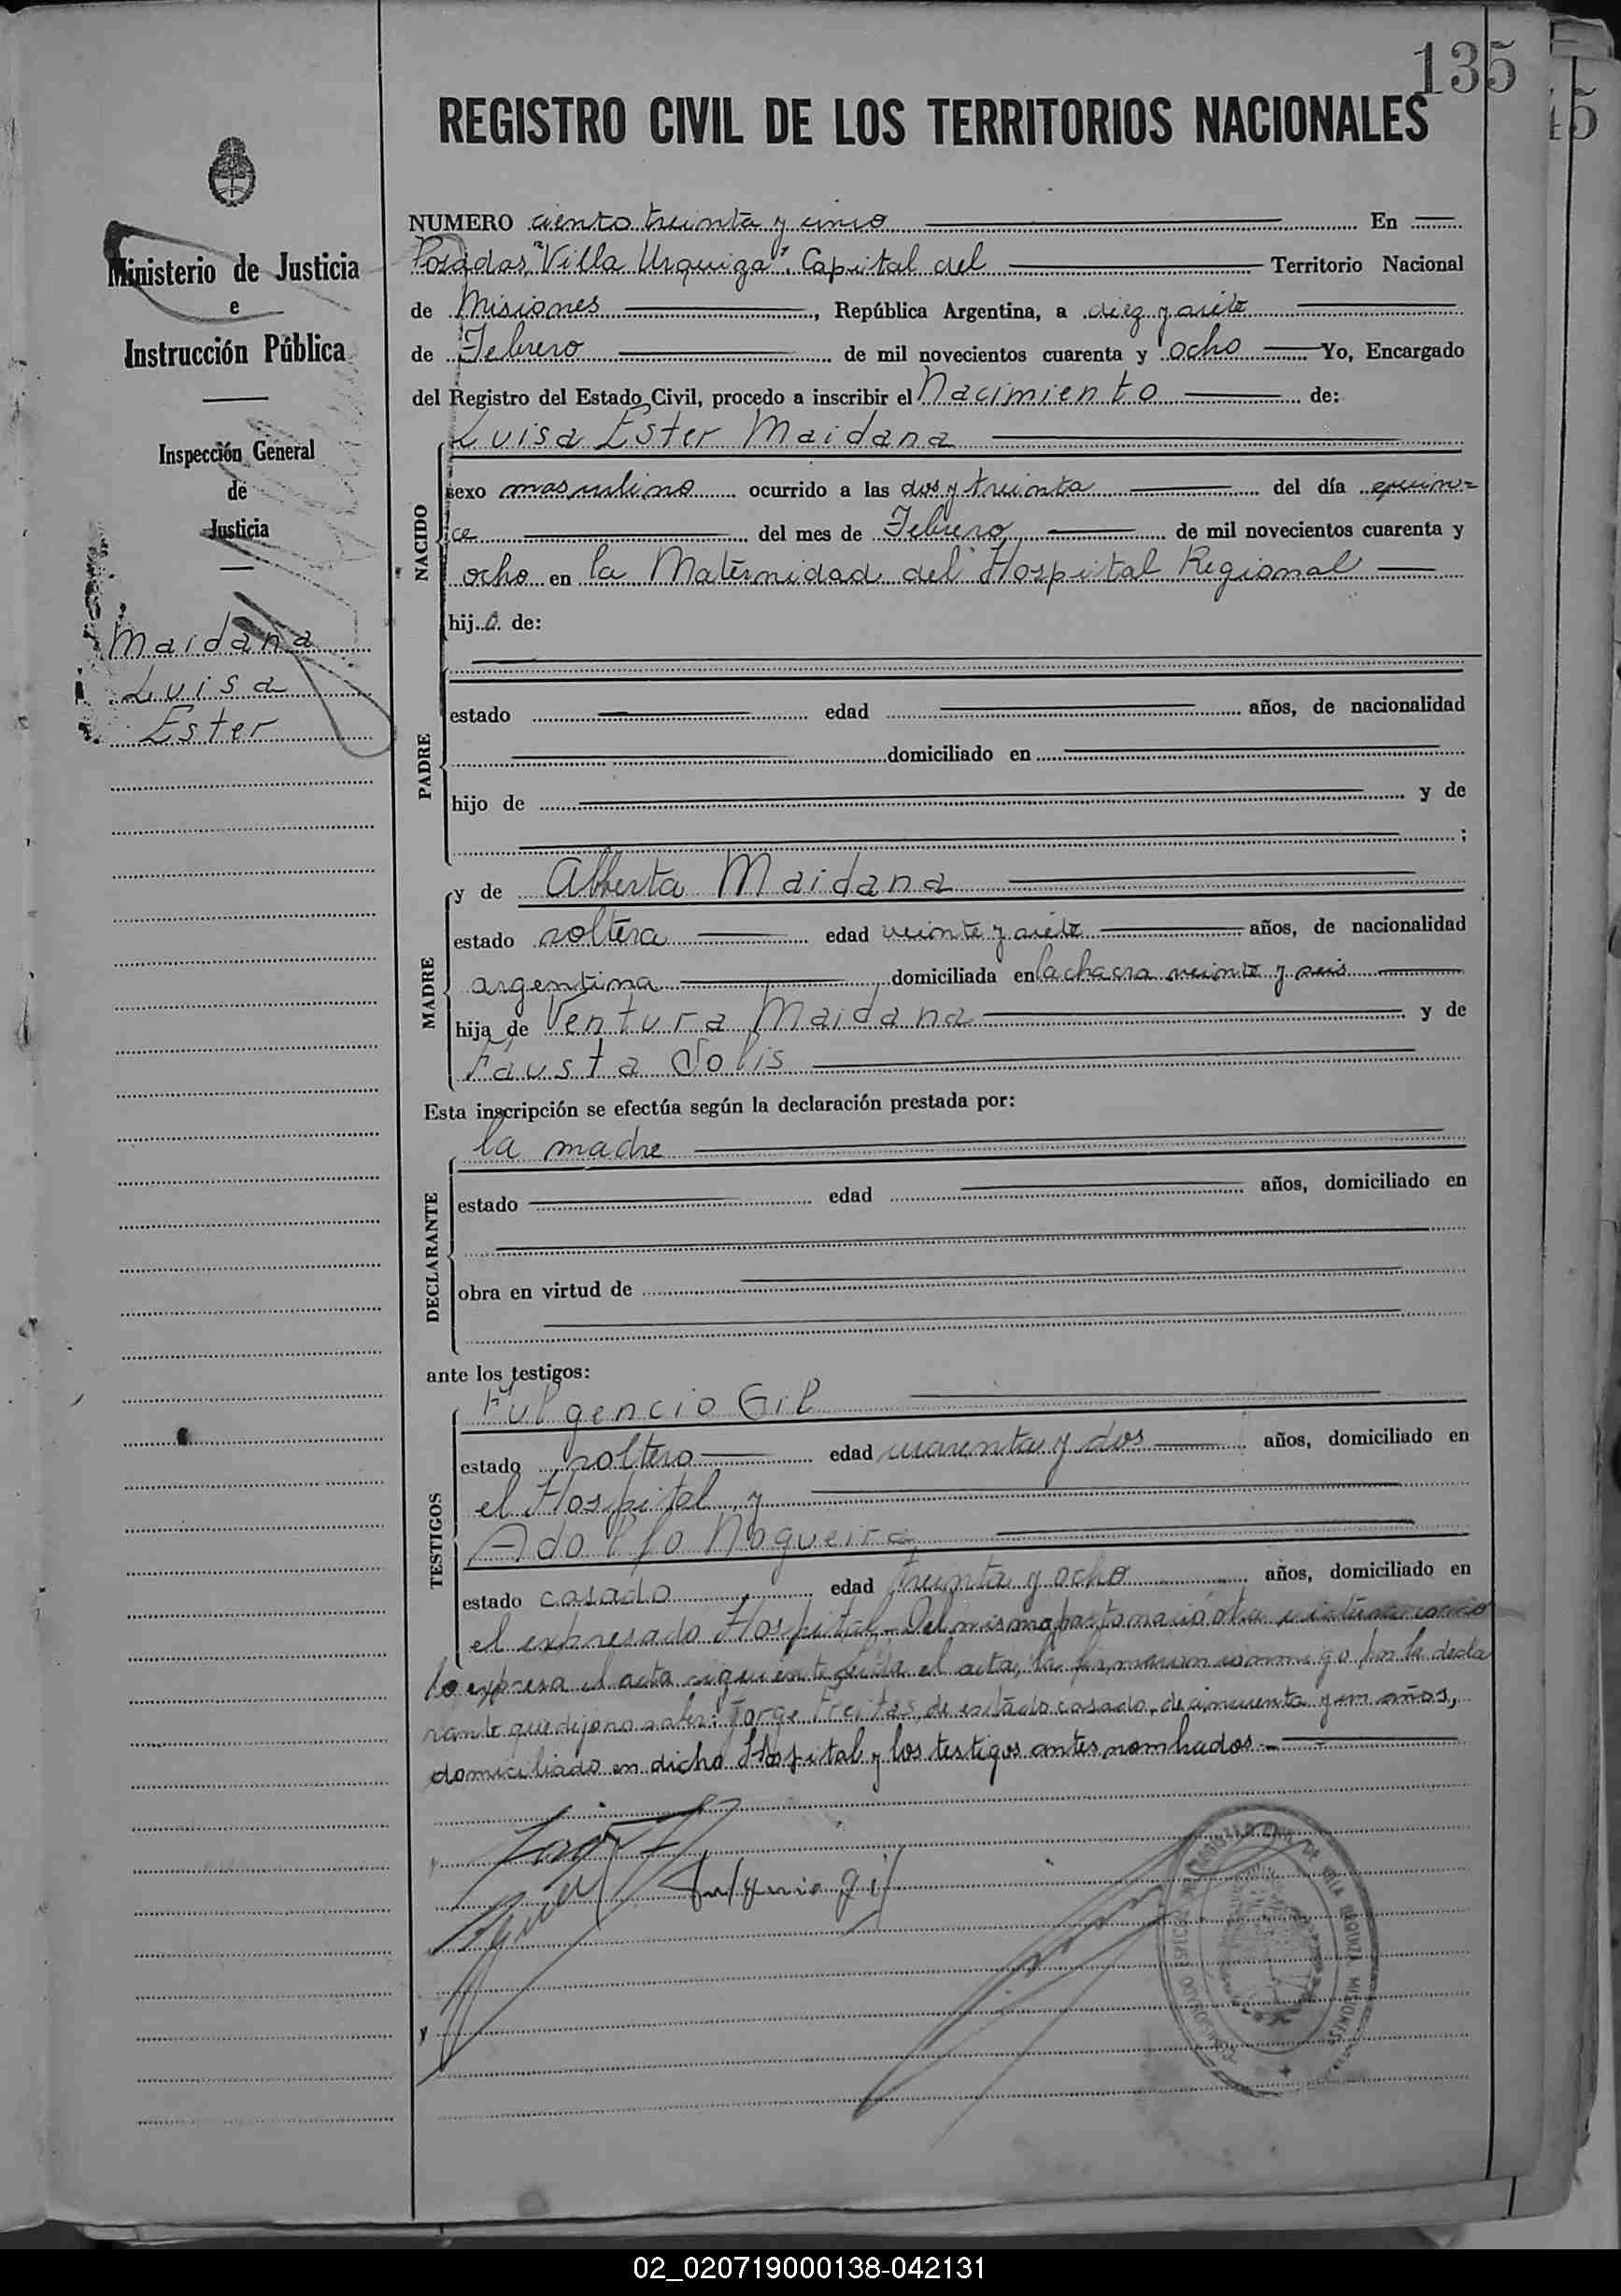 135
45
REGISTRO CIVIL DE LOS TERRITORIOS NACIONALES
Ministerio de Justicia
e
Instrucción Pública
Inspección General
de
Justicia
Maidana
Luisa
Ester
NUMERO ciento treinta y cinco En
Posadas, "Villa Urquiza", Capital del Territorio Nacional
de Misiones, República Argentina, a diez y siete
de Febrero de mil novecientos cuarenta y ocho Yo, Encargado
del Registro del Estado Civil, procedo a inscribir el Nacimiento de:
Luisa Ester Maidana
NACIDO
sexo masculino ocurrido a las dos y treinta del día quin=
ce del mes de Febrero de mil novecientos cuarenta y
ocho en la Maternidad del Hospital Regional
hijo de:
PADRE
estado edad años, de nacionalidad
domiciliado en
hijo de y de
;
MADRE
y de Alberta Maidana
estado soltera edad veinte y siete años, de nacionalidad
argentina domiciliada en la chacra veinte y seis
hija de Ventura Maidana y de
Fausta Solis
Esta inscripción se efectúa según la declaración prestada por:
la madre
DECLARANTE
estado edad años, domiciliado en
obra en virtud de
ante los testigos:
TESTIGOS
Fulgencio Gil
estado soltero edad cuarenta y dos años, domiciliado en
el Hospital y
Adolfo Nogueira
estado casado edad treinta y ocho años, domiciliado en
el expresado Hospital. Del mismo parto nació otra
lo expresa el acta siguiente. Leída el acta, la firmaron conmigo por la decla
rante que dijo no saber: Jorge Freitas, de estado casado, de cincuenta y un años,
domiciliado en dicho Hospital y los testigos antes nombrados.-
Fulgencio Gil
y
02_020719000138-042131